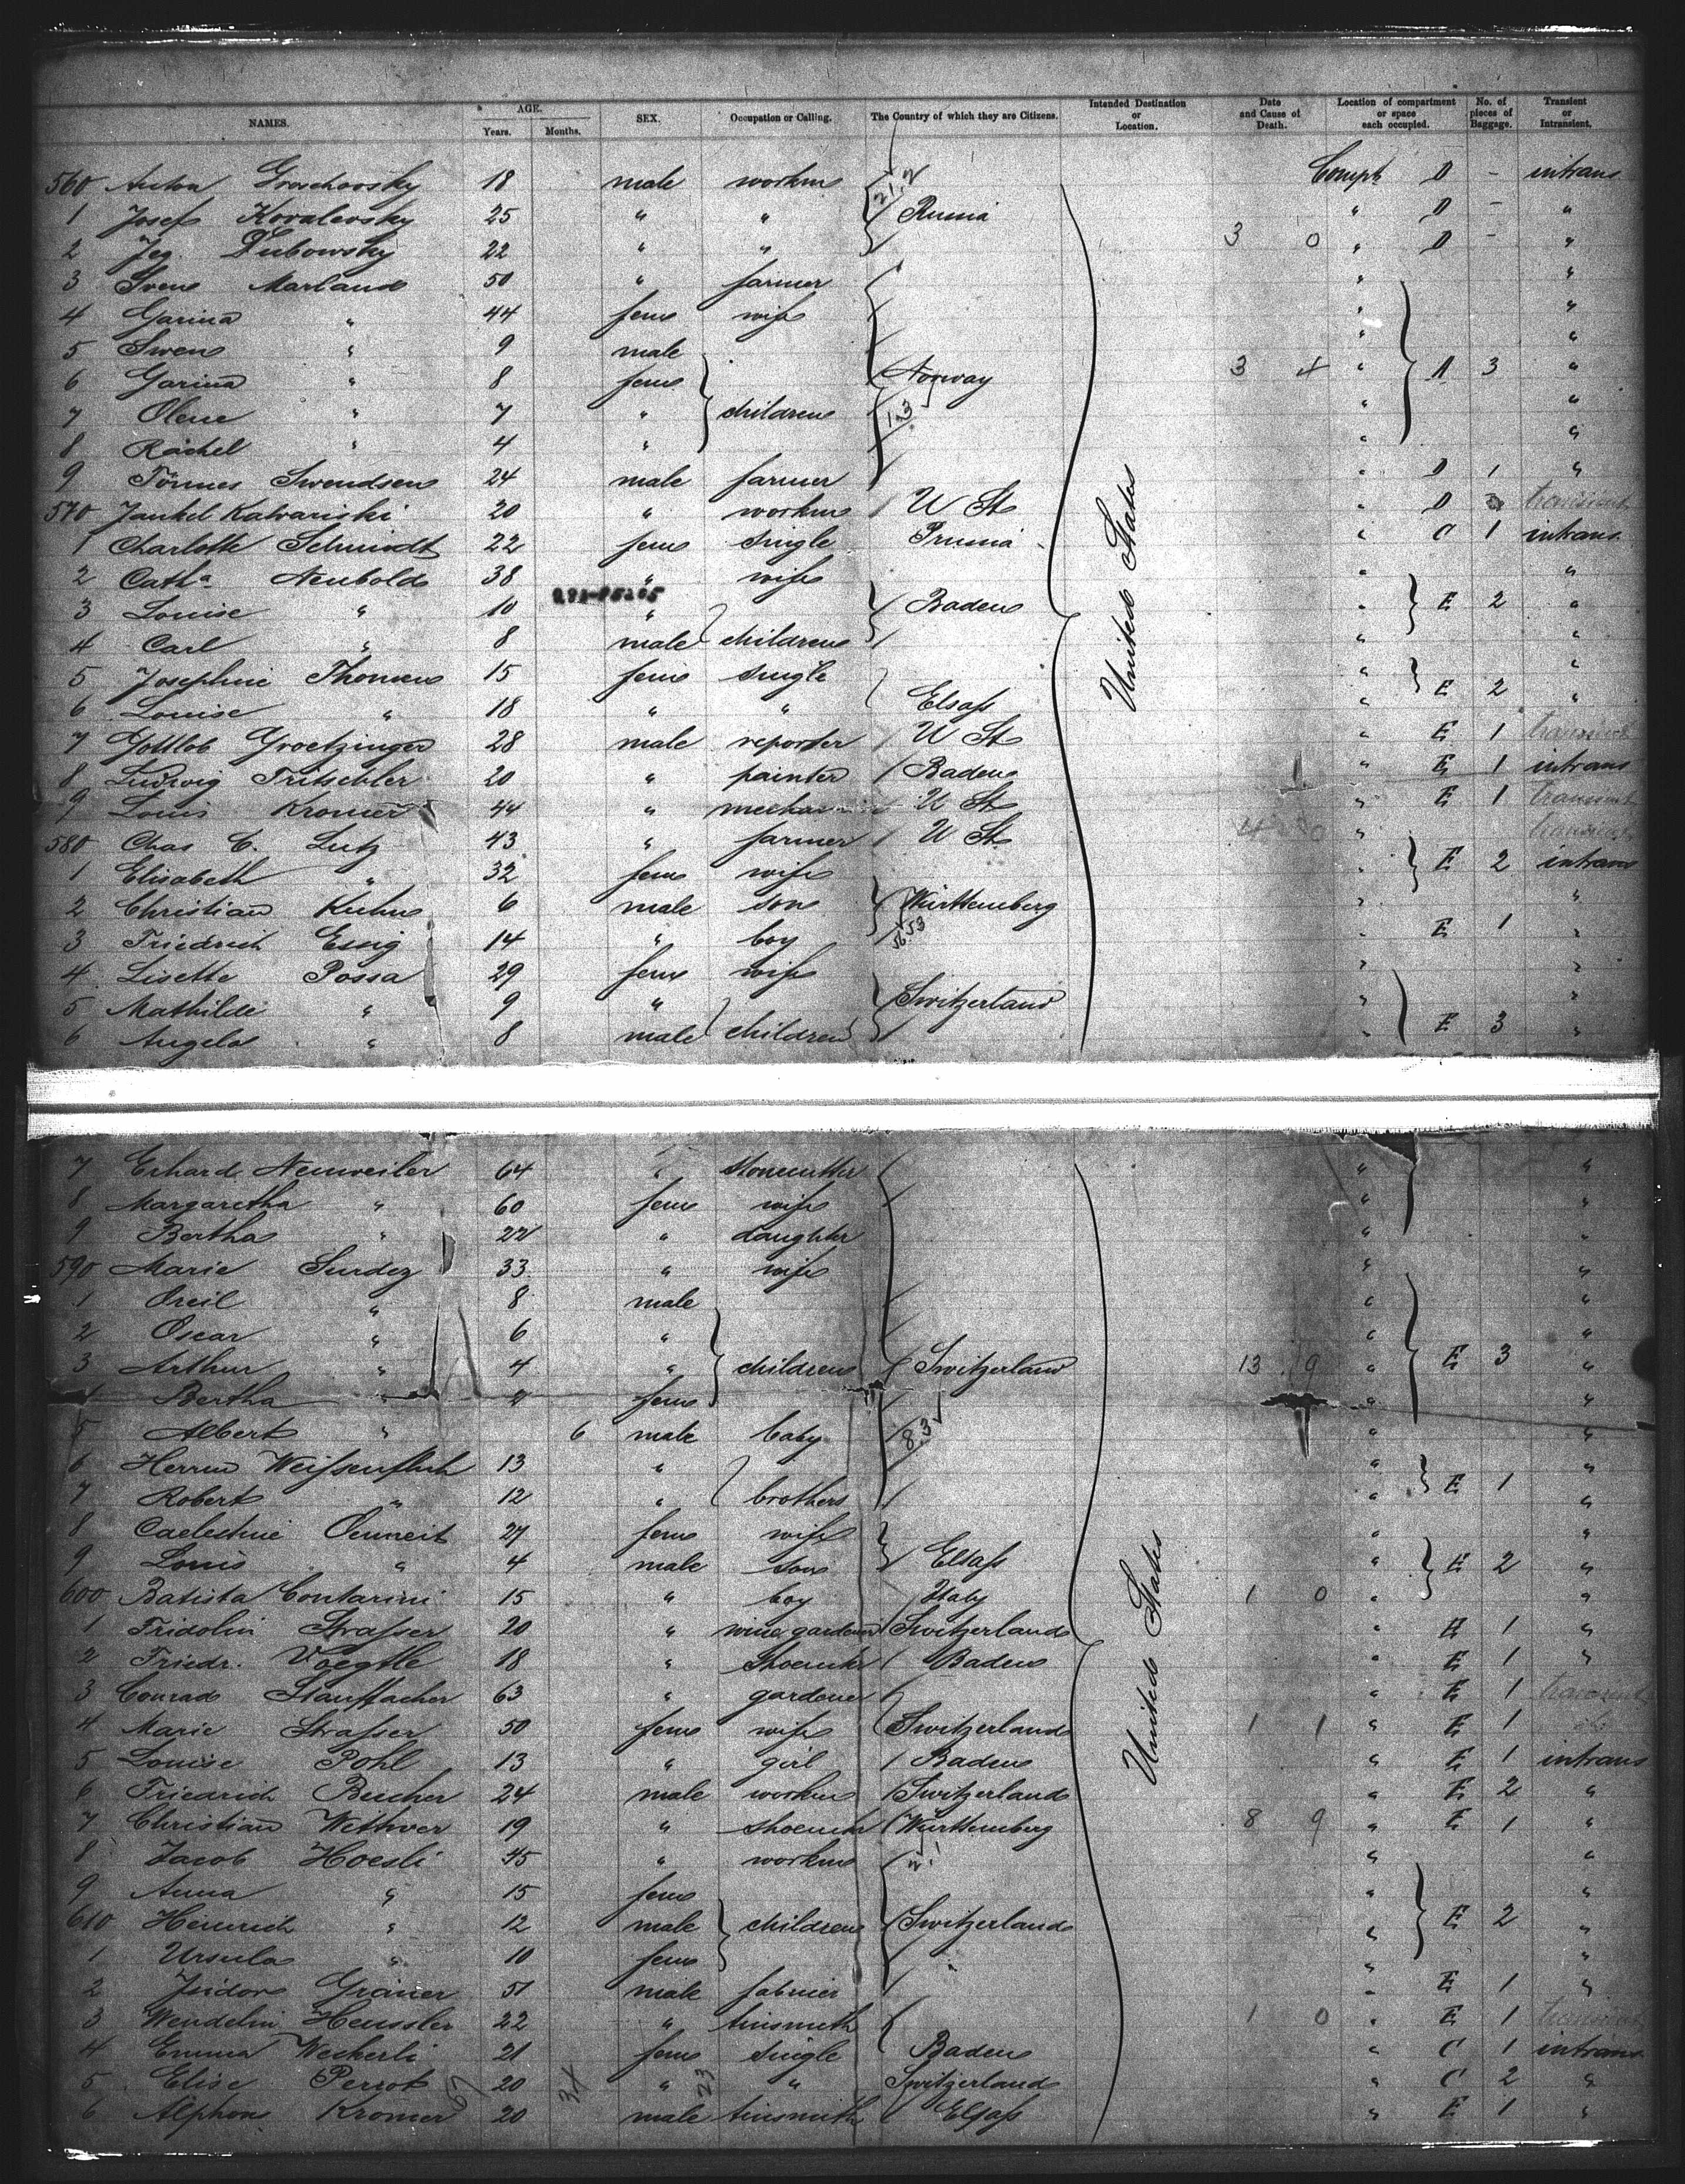 NAMES. AGE. Years. Months. SEX. Occupation or Calling. The Country of which they are Citizens. Intended Destination or Location. Date and Cause of Death. Location of compartment or space each occupied. No. of pieces of Baggage. Transient or Intransient.
560 Anton 18 male workm Compt. D - intrans
1 Josef Kovalevsky 25 " " Russia " D - "
2 Jeg. Dubowsky 22 " " 3 0 " D - "
3 Sven Marland 50 " farmer " "
4 Garina " 44 fem wife " "
5 Swen " 9 male " "
6 Garina " 8 fem Norway 3 4 " A 3 "
7 Olene " 7 " children " "
8 Rachel " 4 " " "
9 Tönnes Swendsen 24 male farmer " D 1 "
570 Jankel Kalvariski 20 " workm U St " D transient
1 Charlotte Schmidt 22 fem single Prussia " C 1 intrans
2 Catha Neubold 38 " wife " "
3 Louise " 10 " Baden " E 2 "
4 Carl " 8 male children " "
5 Josephine Thomen 15 fem single " "
6 Louise " 18 " " Elsaß " E 2 "
7 Gottlob Groetzinger 28 male reporter U St " E 1 transient
8 Ludwig Fritschler 20 " painter Baden " E 1 intrans
9 Louis Kromer 44 " mechanic U St " E 1 transient
580 Chas C. Lutz 43 " farmer U St " transient
1 Elisabeth " 32 fem wife " E 2 intrans
2 Christian Kuhn 6 male son Württemberg " "
3 Friedrich Essig 14 " boy E 1 "
4 Lisette Possa 29 fem wife " "
5 Mathilde " 9 " Switzerland " "
6 Angelo " 8 male children " E 3 "
United States
7 Erhard Neuweiler 64 " stonecutter " "
8 Margaretha " 60 fem wife " "
9 Bertha " 22 " daughter " "
590 Marie Surdez 33 " wife " "
1 " 8 male " "
2 Oscar " 6 " " "
3 Arthur " 4 " children Switzerland 13 9 " E 3 "
4 Bertha " " fem " "
5 Albert " 6 male baby " "
6 Weißenfluh 13 " " "
7 Robert " 12 " brothers " E 1 "
8 Caelestine 27 fem wife " "
9 Louis " 4 male son Elsaß " E 2 "
600 Batista Contarini 15 " boy Italy 1 0 " "
1 Fridolin Straßer 20 " wine gardener Switzerland " E 1 "
2 Friedr. Voegtle 18 " shoemkr Baden " E 1 "
3 Conrad Stauffacher 63 " gardener " E 1 transient
4 Marie Straßer 50 fem wife Switzerland 1 1 " E 1
5 Louise Pohl 13 " girl Baden " E 1 intrans
6 Friedrich Beicher 24 male workm Switzerland " E 2 "
7 Christian 19 " shoemkr Württemberg 8 9 " E 1 "
8 Jacob Hoesli 45 " workm " "
9 Anna " 15 fem " "
610 Heinrich " 12 male children Switzerland " E 2 "
1 Ursula " 10 fem " "
2 Isidor 51 male " E 1 "
3 Wendelin Heussler 22 " tinsmith 1 0 " E 1 transient
4 Emma Weckerli 21 fem single Baden " C 1 intrans
5 Elise Perrot 20 " " Switzerland " C 2 "
6 Alphons Kromer 20 male tinsmith Elsaß " E 1 "
United States